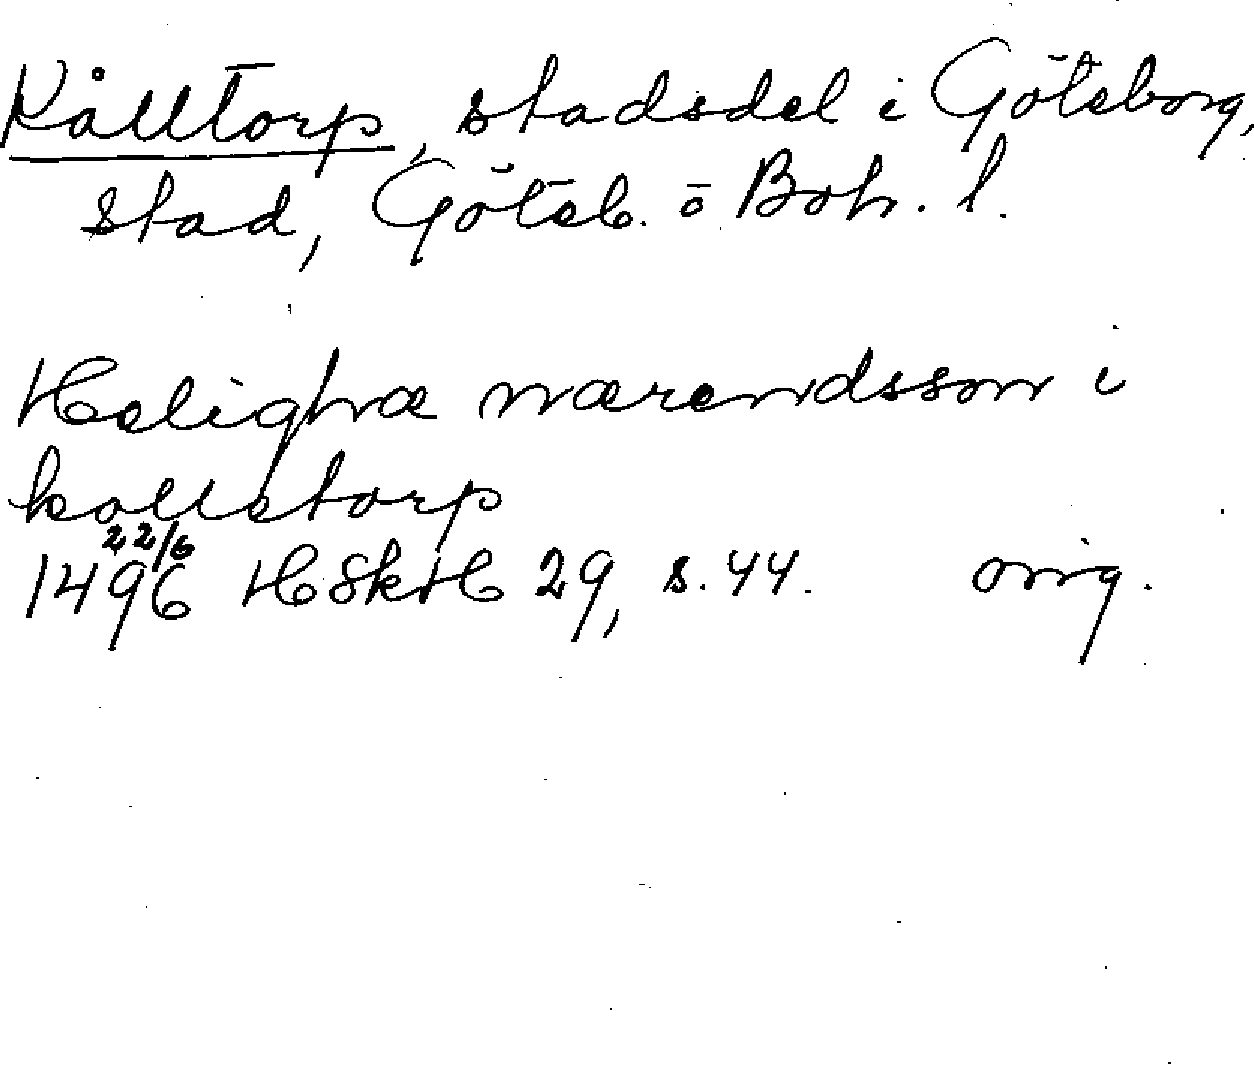 Kålltorp, stadsdel i Göteborg,
stad, Göteb. o Boh. l.
Helighæ mærendsson i
kolletorp
1496 22/6 HSkH 29, s. 44. orig.